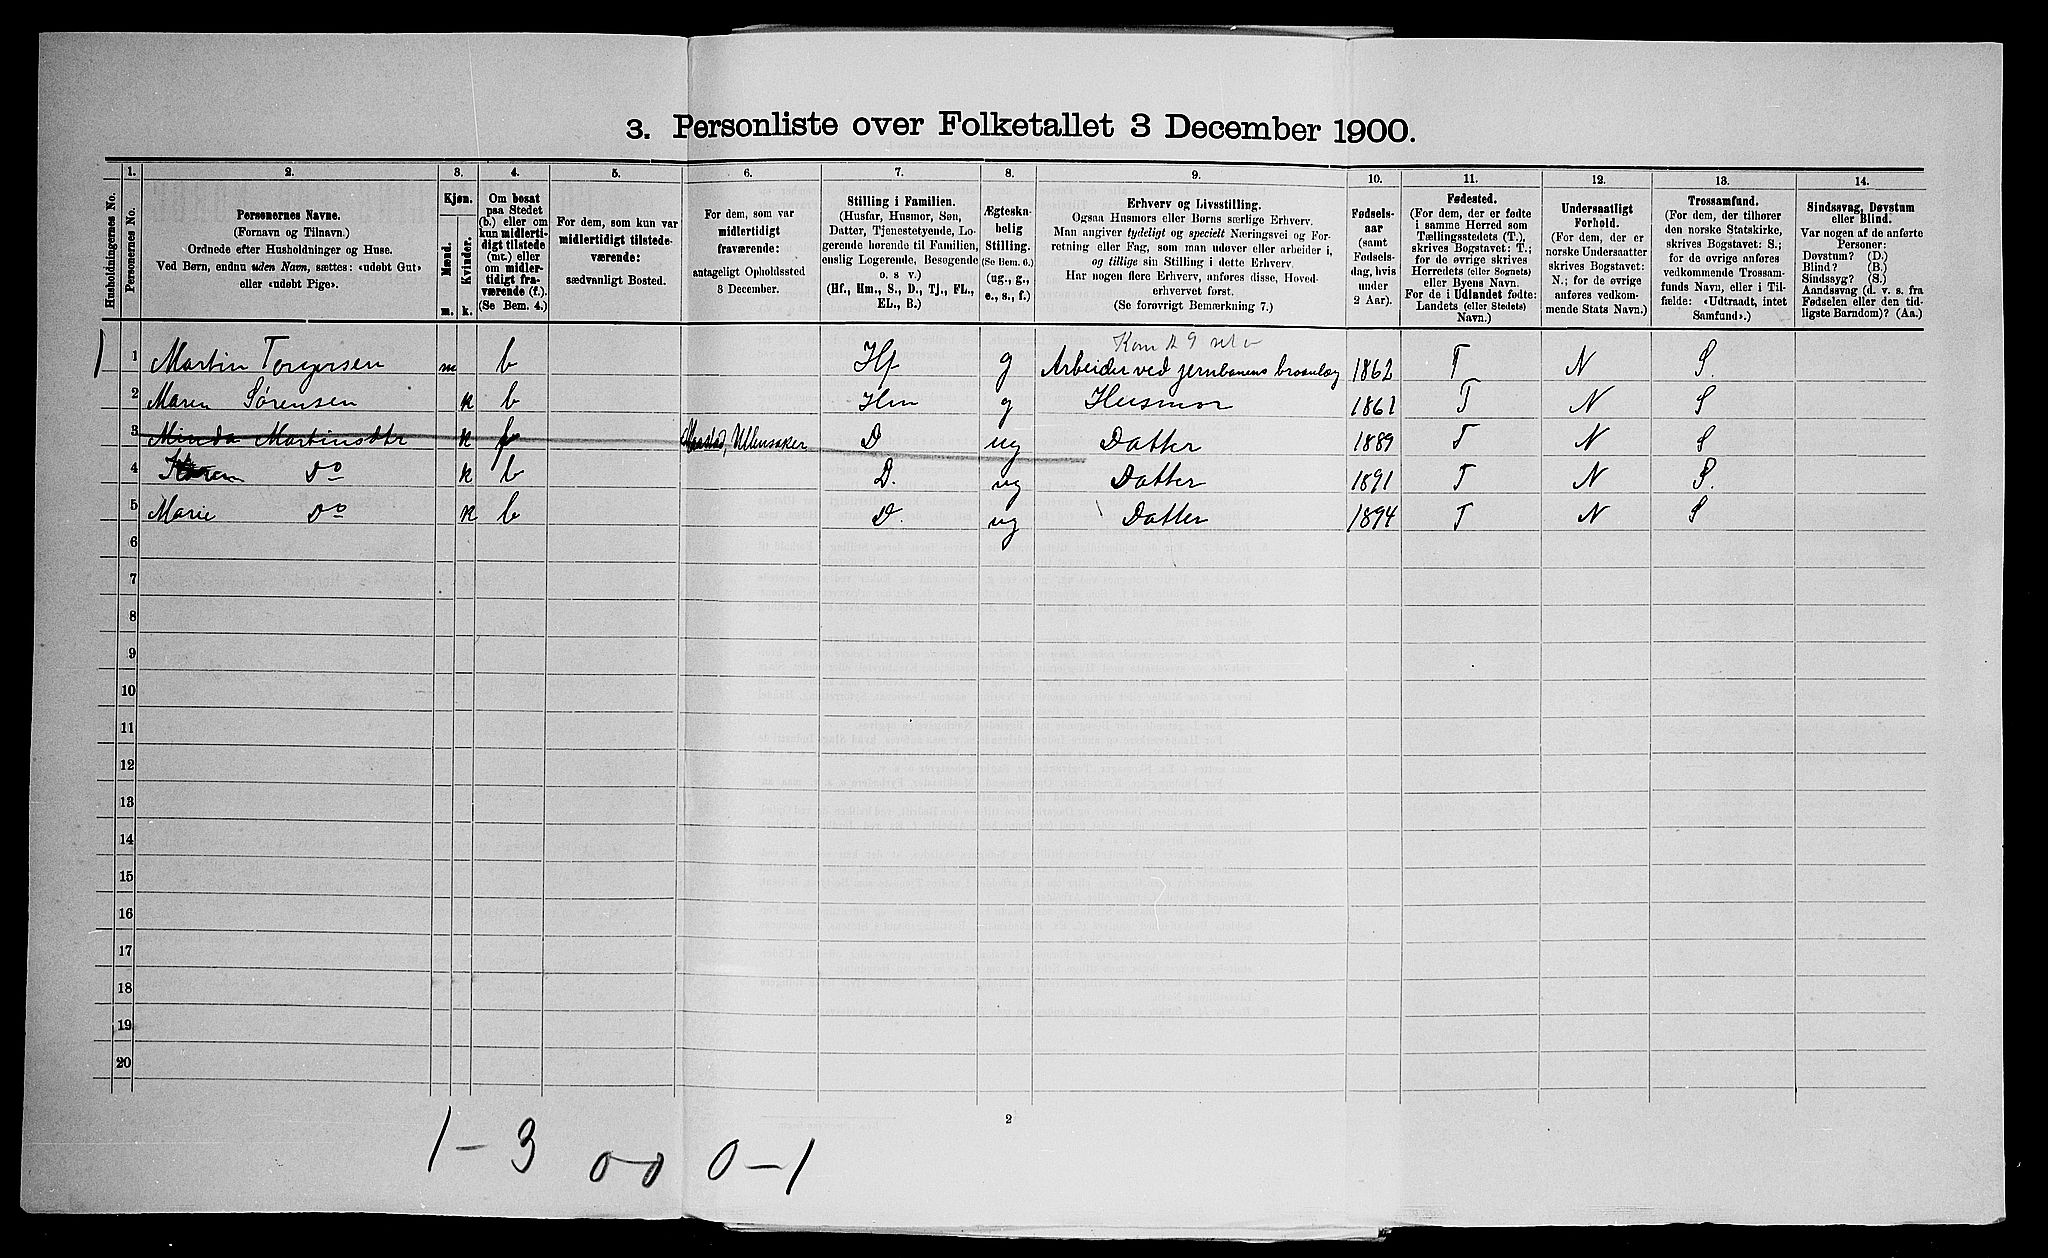 3. Personliste over Folketallet 3 December 1900.
1. 2. 3. 4. 5. 6. 7. 8. 9. 10. 11. 12. 13. 14.
Husholdningernes No.
Personernes No.
Personernes Navne.
(Fornavn og Tilnavn.)
Ordnede efter Husholdninger og Huse.
Ved Børn, endnu uden Navn, sættes: «udøbt Gut»
eller «udøbt Pige».
Kjøn.
Mænd.
Kvinder.
m. k.
Om bosat
paa Stedet
(b.) eller om
kun midlerti-
digt tilstede
(mt.) eller
om midler-
tidigt fra-
værende (f.).
(Se Bem. 4.)
For dem, som kun var
midlertidigt tilstede-
værende:
sædvanligt Bosted.
For dem, som var
midlertidigt
fraværende:
antageligt Opholdssted
3 December.
Stilling i Familien.
(Husfar, Husmor, Søn,
Datter, Tjenestetyende, Lo-
gerende hørende til Familien,
enslig Logerende, Besøgende
o. s v.)
(Hf., Hm., S., D., Tj., FL.,
EL., B.)
Ægteska-
belig
Stilling.
(Se Bem. 6.)
(ug., g.,
e., s., f.)
Erhverv og Livsstilling.
Ogsaa Husmors eller Børns særlige Erhverv.
Man angiver tydeligt og specielt Næringsvei og For-
retning eller Fag, som man udøver eller arbeider i,
og tillige sin Stilling i dette Erhverv.
Har nogen flere Erhverv, anføres disse, Hoved-
erhvervet først.
(Se forøvrigt Bemærkning 7.)
Fødsels-
aar
(samt
Fødsels-
dag, hvis
under
2 Aar).
Fødested.
(For dem, der er fødte
i samme Herred som
Tællingsstedets (T.),
skrives Bogstavet: T.;
for de øvrige skrives
Herredets (eller Sognets)
eller Byens Navn.
For de i Udlandet fødte:
Landets (eller Stedets)
Navn.)
Undersaatligt
Forhold.
(For dem, der er
norske Undersaatter
skrives Bogstavet:
N.; for de øvrige
anføres vedkom-
mende Stats Navn.)
Trossamfund.
(For dem, der tilhører
den norske Statskirke,
skrives Bogstavet: S.;
for de øvrige anføres
vedkommende Trossam-
funds Navn, eller i Til-
fælde: «Udtraadt, intet
Samfund».)
Sindssvag, Døvstum
eller Blind.
Var nogen af de anførte
Personer:
Døvstum? (D.)
Blind? (B.)
Sindssyg? (S.)
Aandssvag (d. v. s. fra
Fødselen eller den tid-
ligste Barndom)? (Aa.)
1 1 Martin Torgersen m b Hf g Arbeider ved jernbanens broanlæg 1862 T N S.
2 Maren Sørensen k b Hm g Husmor 1861 T N S
3 Minda Martinsdtr k f Ullensaker D ug Datter 1889 T N S
4 Karen Do k b D. ug Datter 1891 T N S.
5 Marie Do k b D. ug Datter 1894 T N S
6
7
8
9
10
11
12
13
14
15
16
17
18
19
20
2
1-3 0-0 0-1